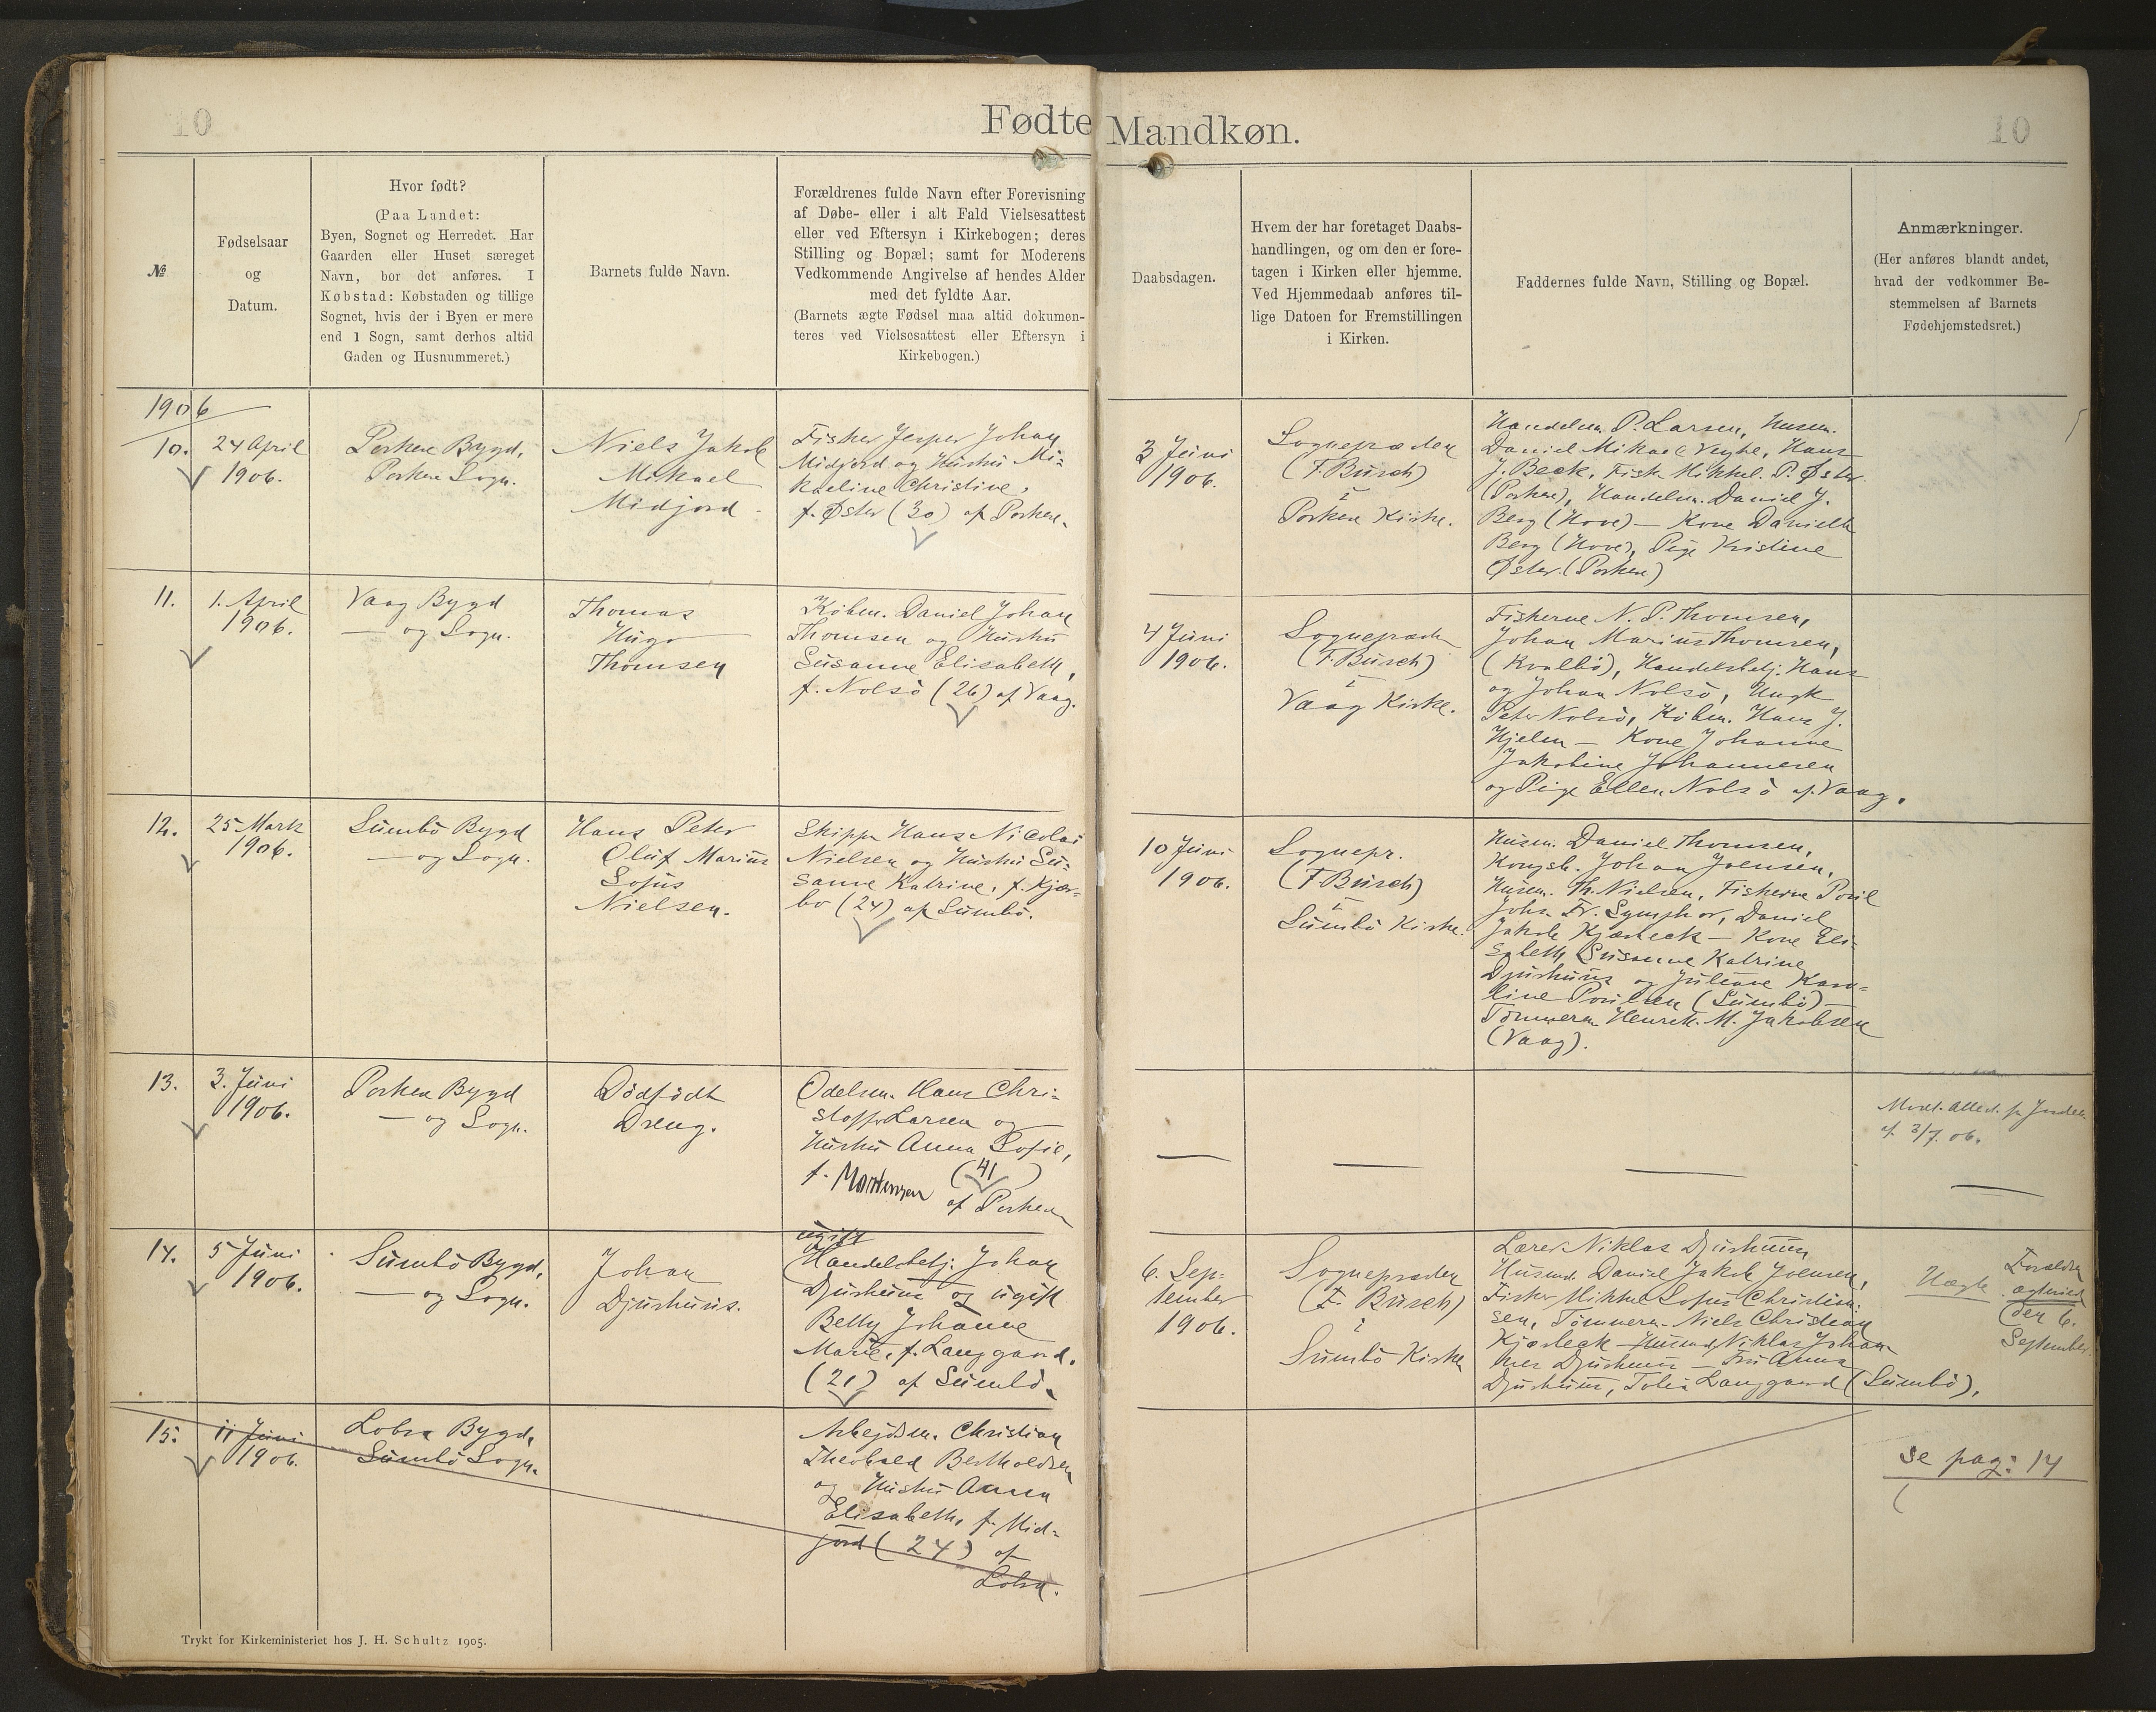 10
Fødte Mandkøn.
10
№
Fødselsaar
og
Datum.
Hvor født?
(Paa Landet:
Byen, Sognet og Herredet. Har
Gaarden eller Huset særeget
Navn, bør det anføres. I
Købstad: Købstaden og tillige
Sognet, hvis der i Byen er mere
end 1 Sogn, samt derhos altid
Gaden og Husnummeret.)
Barnets fulde Navn.
Forældrenes fulde Navn efter Forevisning
af Døbe- eller i alt Fald Vielsesattest
eller ved Eftersyn i Kirkebogen; deres
Stilling og Bopæl; samt for Moderens
Vedkommende Angivelse af hendes Alder
med det fyldte Aar.
(Barnets ægte Fødsel maa altid dokumen-
teres ved Vielsesattest eller Eftersyn i
Kirkebogen.)
Daabsdagen.
Hvem der har foretaget Daabs-
handlingen, og om den er fore-
tagen i Kirken eller hjemme.
Ved Hjemmedaab anføres til-
lige Datoen for Fremstillingen
i Kirken.
Faddernes fulde Navn, Stilling og Bopæl.
Anmærkninger.
(Her anføres blandt andet,
hvad der vedkommer Be-
stemmelsen af Barnets
Fødehjemstedsret.)
1906
10.
24 April
1906.
Porkere Bygd,
Porkere Sogn.
Niels Jakob
Mikael
Midjord.
Fisker Jesper Johan
Midjord og Hustru Mi-
kaeline Christine,
f. Øster (30) af Porkere.
3 Juni
1906.
Sognepræsten
(F. Büsch)
i
Porkere Kirke.
Handelsm. P. Larsen, Husm.
Daniel Mikael Veyhe, Hans
J. Beck, Fisk. Mikkel P. Øster
(Porkere), Handelsm. Daniel J.
Berg (Hove) — Kone
Berg (Hove), Pige Kristine
Øster (Porkere)
11.
1. April
1906.
Vaag Bygd
— og Sogn.
Thomas
Hugo
Thomsen
Købm. Daniel Johan
Thomsen og Hustru
Susanne Elisabeth,
f. Nolsö (26) af Vaag.
4 Juni
1906.
Sognepræst
(F. Büsch)
i
Vaag Kirke.
Fiskerne N. P. Thomsen,
Johan Marius Thomsen,
(Kvalbö), Handelsbetj. Hans
og Johan Nolsö, Ungk
Peter Nolsö, Købm. Hans J.
Hjelm — Kone Johanne
Jakobine Johannesen
og Pige Ellen Nolsö af Vaag.
12.
25 Marts
1906.
Sumbö Bygd
— og Sogn.
Hans Peter
Oluf Marius
Sofus
Nielsen.
Skipper Hans Nicolai
Nielsen og Hustru Su-
sanne Katrine, f. Kjær-
bo (24) af Sumbö.
10 Juni
1906.
Sognepr.
(F Büsch)
i
Sumbö Kirke.
Husm. Daniel Thomsen,
Kongsb. Johan Joensen,
Husm. Th. Nielsen, Fiskerne Poul
Johs. Fr. Symphor, Daniel
Jakob Kjærbeck — Kone Eli-
sabeth Susanne Katrine
Djurhuus og Juliane Karo-
line Poulsen (Sumbö) —
Tömmerm. Henrik M. Jakobsen
(Vaag).
13.
3. Juni
1906.
Porkere Bygd
— og Sogn.
Dödfödt
Dreng.
Odelsm. Hans Chri-
stoffer Larsen og
Hustru Anna Sofie,
f. Mortensen (41)
af Porkere
Modt. Attest fr Jordem
af 3/7. 06.
14.
5 Juni
1906.
Sumbö Bygd,
— og Sogn.
Johan
Djurhuus.
ugift
Handelsbetj. Johan
Djurhuus og ugift
Betty Johanne
Marie, f. Langgaard.
(21) af Sumbö.
6. Sep-
tember
1906.
Sognepræsten
(F. Büsch)
i
Sumbö Kirke
Lærer Niklas Djurhuus
Husmd. Daniel Jakob Joensen,
Fisker Mikkel Sofus Christian-
sen, Tömmerm. Niels Christian
Kjærbeck — Husmd Niklas Johan-
nes Djurhuus — Fru Anna
Djurhuus, Langgaard (Sumbö).
Uægte
Forældre
ægteviet
den 6.
September.
15.
11 Juni
1906.
Lobra Bygd,
Sumbö Sogn.
Arbejdsm. Christian
Theobald Bertholdsen
og Hustru Anna
Elisabeth, f. Mid-
jord (24) af
Lobra.
se pag: 14
Trykt for Kirkeministeriet hos J. H. Schultz 1905.